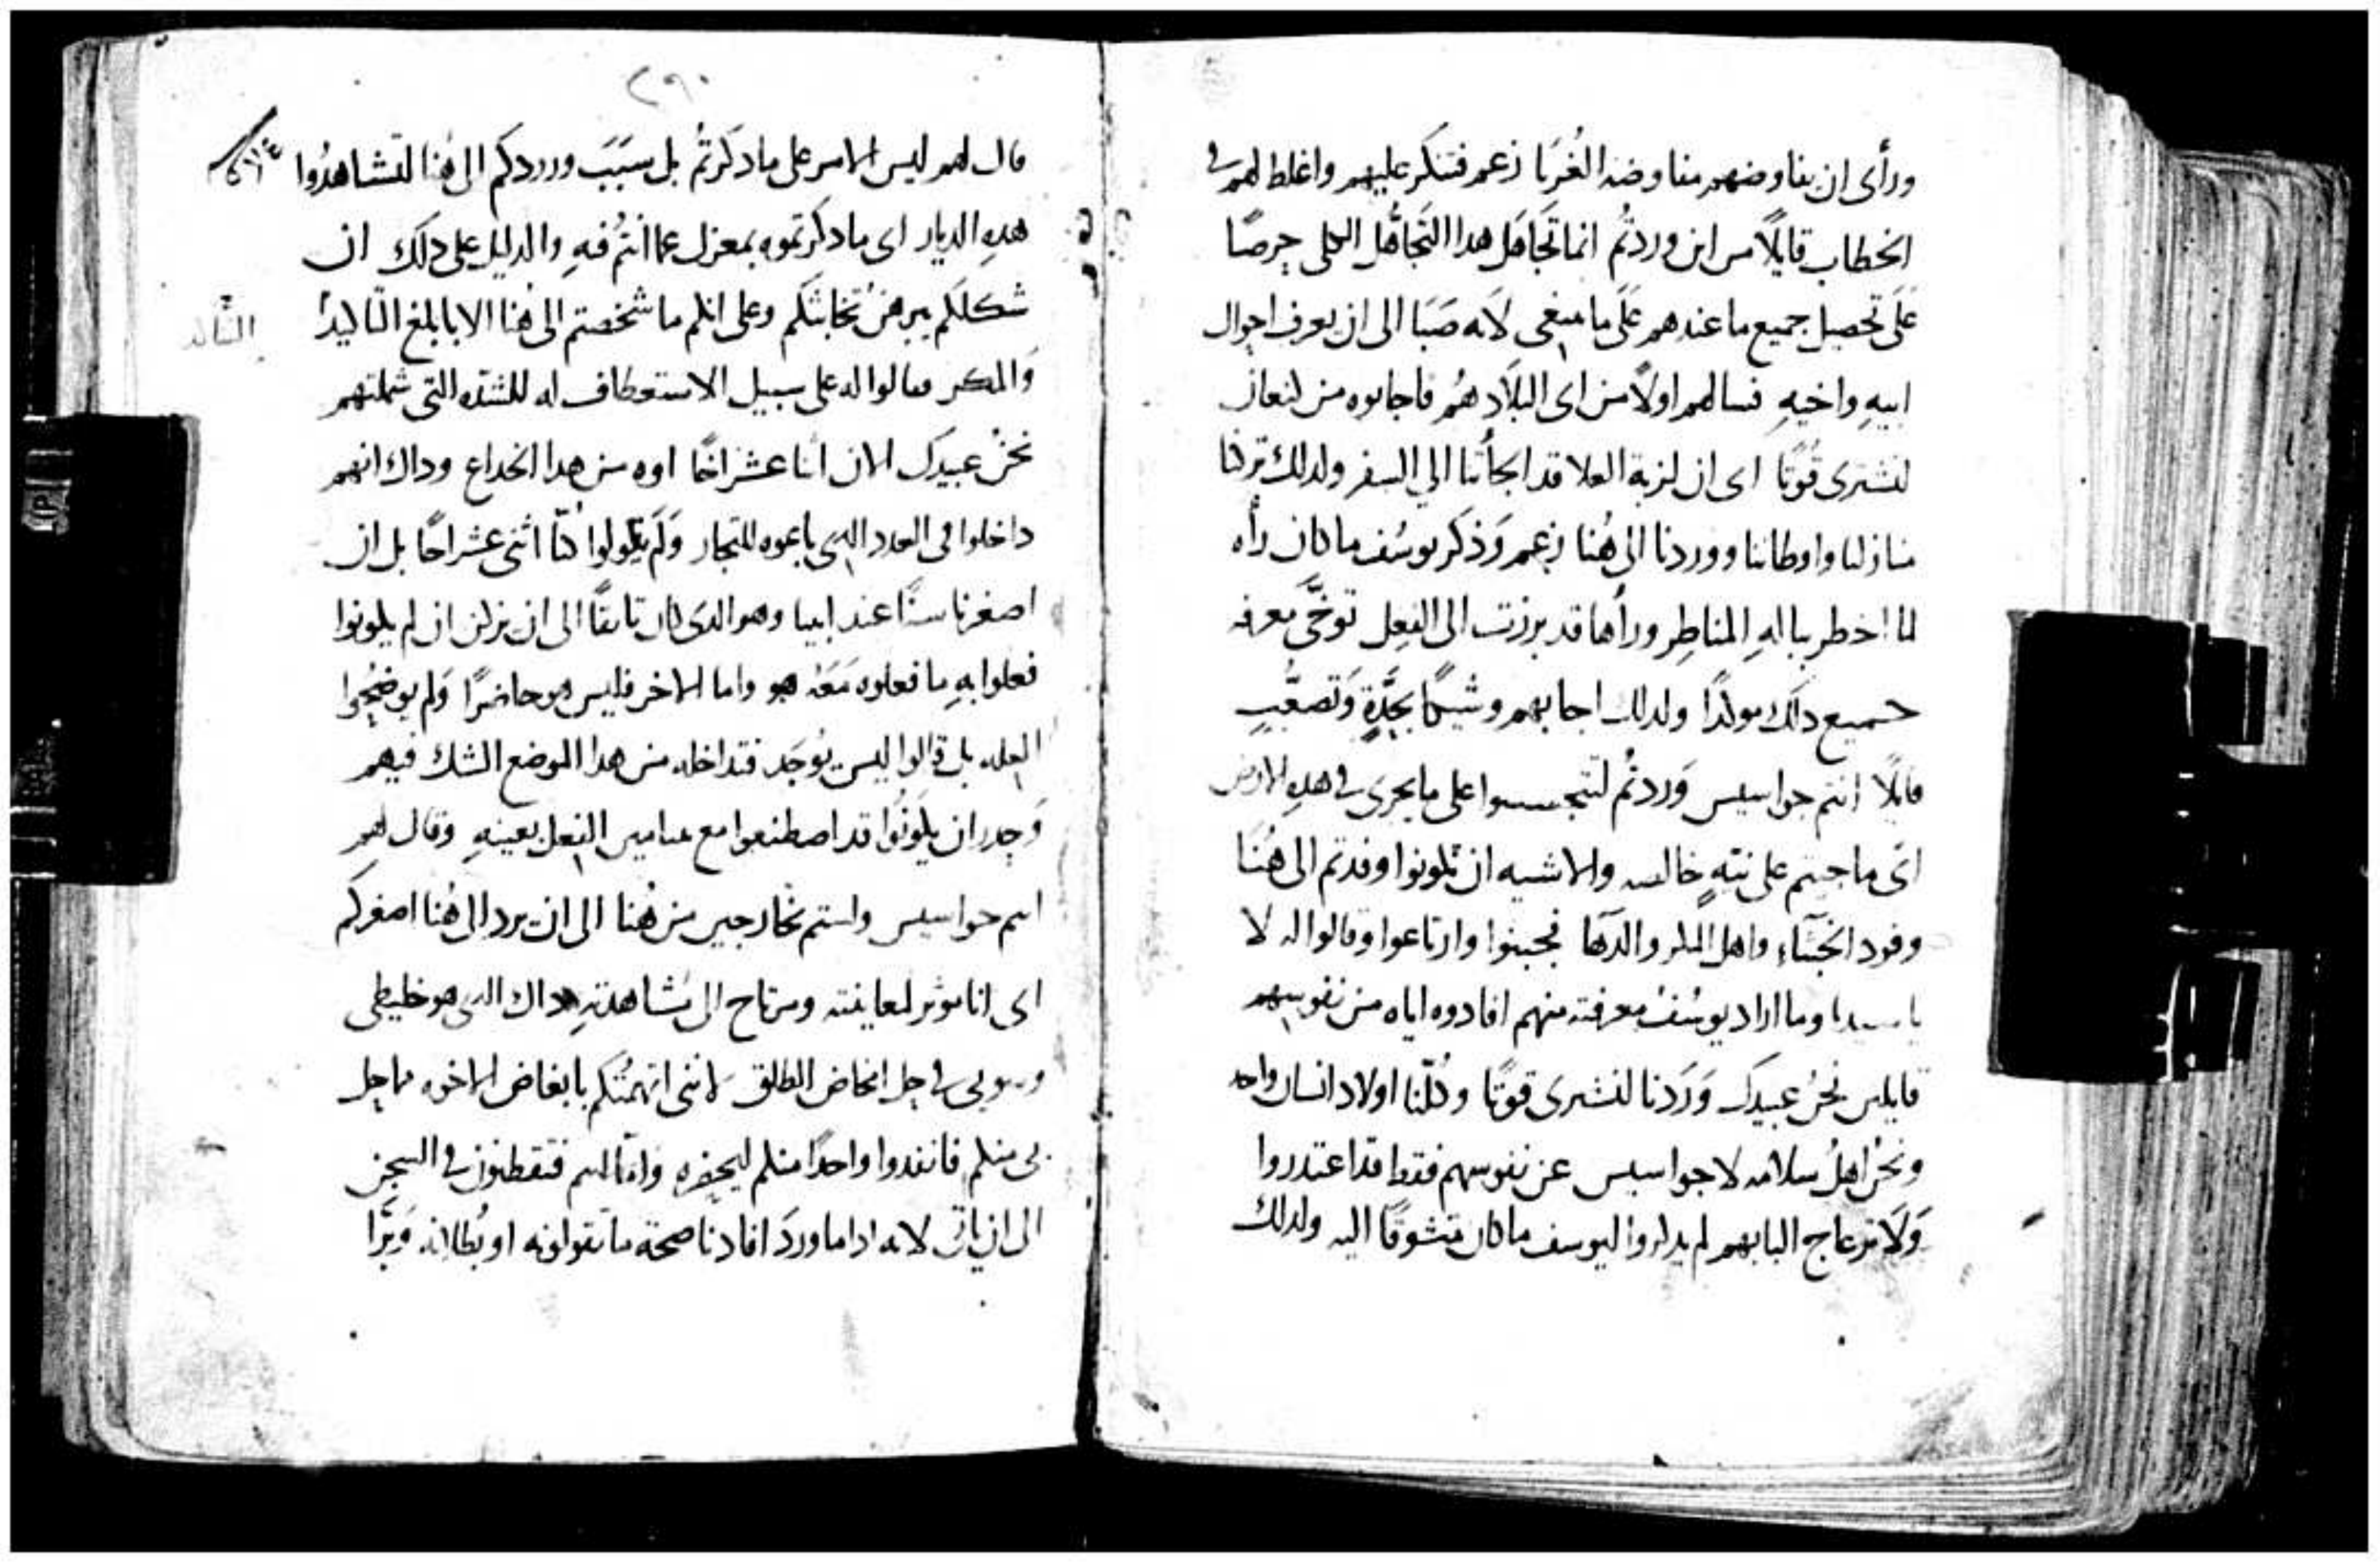 ورأى ان يفاوضهم مفاوضه الغُرَبا زعم فتنكر عليهم واغلظ لهم في
الخطاب قايلًا من اين وردتُم انما تجَاهَل هدا التَجاهُل الكلى حرصًا
عَلَى تحصيل جميع ما عندهم عَلَى ما ينبغى لانه صَبَا الى ان يعرف احوال
ابيهِ واخيهِ فسالهم اولًا من اى البلَاد هُم فاجابوه من كنعان
لنشترى قُوتًا اى ان لزبة الغلا قد الجأتنا الي السفر ولدلك تركنا
منازلنا واوطاننا ووردنا الى هُنا زعم وَذكر يوسُف ما كان رأه
لما اخطر ببالهِ المناظِر ورأها قد برزت الى الفِعل توخَّى معرفه
جميع دلك موكدًا ولدلك اجابهم وشيكًا بحِدَّةٍ وَتصعُّبٍ
قايلًا انتم جواسيس وَردتُم لتتجسسوا على ما يجرى في هدهِ الارض
اى ما جيتم على نيّهٍ خالصه والاشبه ان تكونوا وفدتم الى هُنَا
وفود الخبثاء واهل المكر والدَها فجبنوا وارتاعوا وقالوا له لا
يا سيدنا وما اراد يوسُفُ معرفته منهم افادوه اياه من نفوسهم
قايلين نحنُ عبيدك وَرَدنا لنشترى قوتًا وكُلّنا اولاد انسان واحد
ونحنُ اهلُ سلامه لا جواسيس عن نفوسهم فقط قد اعتدروا
وَلانزعاج البابهم لم يدكروا ليوسف ما كان متشوقًا اليه ولدلك
٢٩٠
قال لهم ليس الامر على ما دكرتُم بل سَبَبَ وروردكم الى هُنا لتشاهدُوا
هدهِ الديار اى ما دكرتموه بمعزل عما انتُم فيهِ والدليل على دلك ان
شكلكم يبرهنُ تخابثكم وعلى انكم ما شخصتم الى هنا الا بابلغ
وَالمكر فقالوا له على سبيل الاستعطاف له للشدّه التى شملتهم
نحنُ عبيدك الان اثنا عشر اخًا اوه من هدا الخداع وداك انهم
داخلوا فى العدد الدى باعوه للتجار وَلَم يقولوا كنّا اثنى عشر اخًا بل ان
اصغرنا سنًّا عند ابينا وهو الدى كان تايقًا الى ان يزكن ان لم يكونوا
فعلوا بهِ ما فعلوه مَعَهُ هو واما الاخر فليس هو حاضرًا وَلم يوضِحُوا
العله بل قالوا ليس يُوجَد فتداخله من هدا الموضع الشك فيهم
وَحدر ان يكونُوا قد اصطنعوا مع بنيامين الفعل بعينهِ وقال لهم
انتم جواسيس ولستم بخارجين من هُنا الى ان يرد الى هُنا اصغركم
اى انا موثر لمعاينته ومرتاح الى مشاهدتهِ داك الدى هو خليطى
في حل الخاض الطلق لاننى اتهمتُكم بابغاض الاخوه
بى منكم فانفدوا واحدًا منكم ليحضره وَامّا انتم فتقطنون في السجن
الى ان ياتى لانه ادا ما وردَ افادنا صحة ما تقولونه او بُطلانه وَبَرَّا